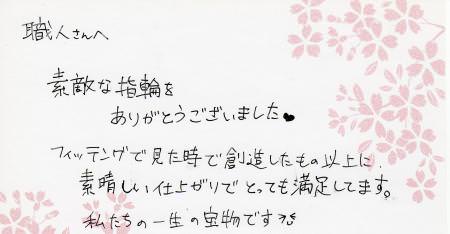 職人さんへ
素敵な指輪を
ありがとうございました♥
フィッテングで見た時で創造したもの以上に
素晴しい仕上がりでとっても満足してます。
私たちの一生の宝物です